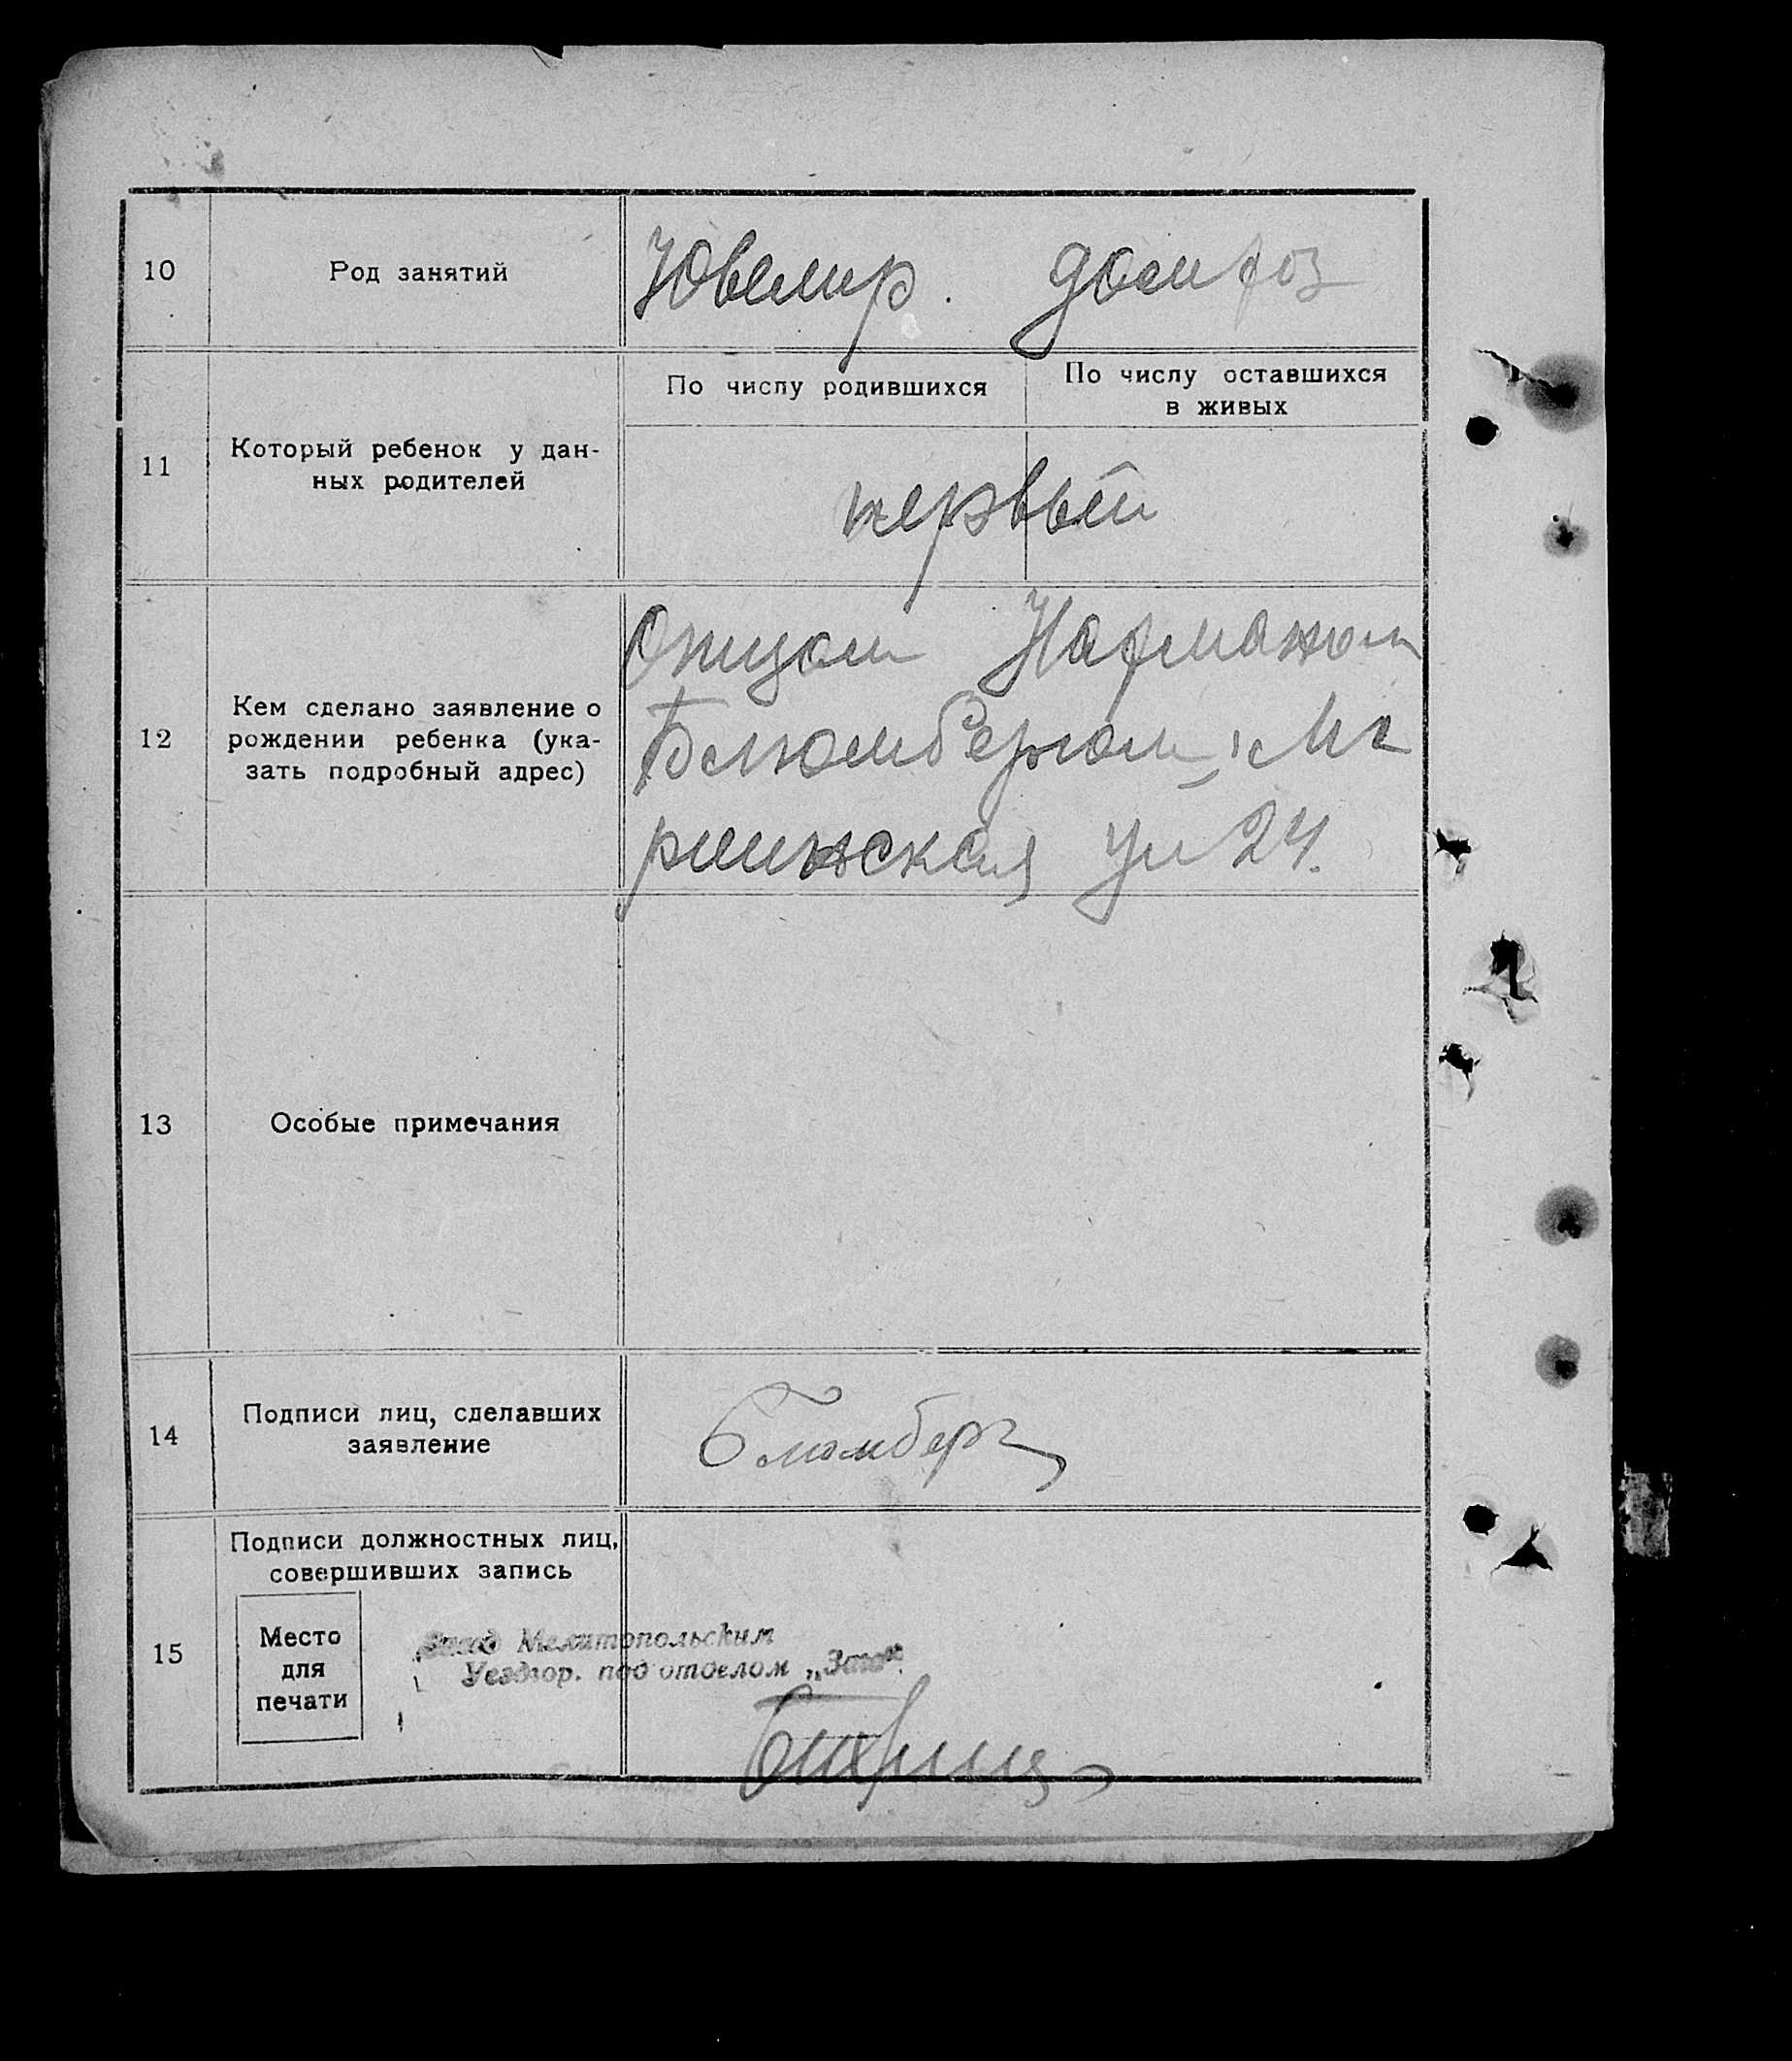 10
Род занятий
Ювелир. домхоз
11
Который ребенок у дан-
ных родителей
По числу родившихся
По числу оставшихся
в живых
первый
12
Кем сделано заявление о
рождении ребенка (ука-
зать подробный адрес)
Отцом Науманом
Блюмбергом, Ма
риинская ул 24.
13
Особые примечания
14
Подписи лиц, сделавших
заявление
Блюмберг
15
Подписи должностных лиц,
совершивших запись
Место
для
печати
Мелитопольским
Уездгор. под отделом „Загс“